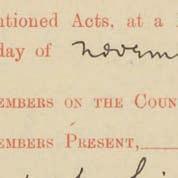 ntioned Acts, at a
day of Novem
EMBERS ON THE COUN
EMBERS PRESENT,